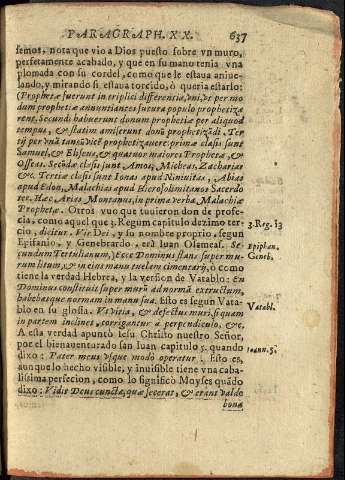 PARAGRAPH. XX. 637
ſemos, nota que vio a Dios pueſto ſobre vn muro,
perfetamente acabado, y que en ſu mano tenia vna
plomada con ſu cordel, como que le eſtaua aniue-
lando, y mirando ſi eſtaua torcido, ò queria eſtarlo:
(Prophetæ fuerunt in triplici differentia, vni, vt per mo
dum prophetiæ annuntiantes futura populo prophetiza
rent, Secundi habuerunt donum prophetiæ per aliquod
tempus, & ſtatim amiſerunt donũ prophetizãdi. Ter-
tij per vnã tantũ vicẽ prophetizauere: primæ claſis ſunt
Samuel, & Eliſeus, & quatuor maiores Prophetæ, &
Oſſeas. Secũdæ claſis ſunt Amos, Micheas, Zacharias
&c. Tertiæ claſis ſunt Ionas apud Niniuitas, Abias
apud Edon, Malachias apud Hieroſolimitanos Sacerdo
tes. Hæc Arias Montanus, in prima verba Malachiæ
Prophetæ. Otros vuo que tuuieron don de profe-
cia, como aquel que 3. Regum capitulo dezimo ter-
cio, dicitur. Vir Dei, y ſu nombre proprio, ſegun
Epifanio, y Genebrardo, era Iuan Olameas. Se-
cundum Tertulianum, (Ecce Dominus ſtans ſuper mu-
rum litum, & in eius manu truelem cimentarij, ò como
tiene la verdad Hebrea, y la verſion de Vatablo: En
Dominus conſtituit ſuper murũ ad normã exeructum,
habebatque normam in manu ſua. Eſto es ſegun Vata-
blo en ſu gloſſa. Vt vitia, & defectus muri, ſi quam
in partem inclinet, corrigantur a perpendiculo, &c.
A eſta verdad apuntò Ieſu Chriſto nueſtro Señor,
por el bienauenturado ſan Iuan capitulo 5. quando
dixo: Pater meus vſque modò operatur. Eſto es,
aunque lo hecho viſible, y inuiſible tiene vna caba-
liſſima perfecion, como lo ſignificò Moyſes quãdo
dixo: Vidit Deus cuncta, quæ fecerat, & erant valde
bona
3. Reg. 13
Epiphan.
Geneb.
Vatabl.
Ioann. 5.